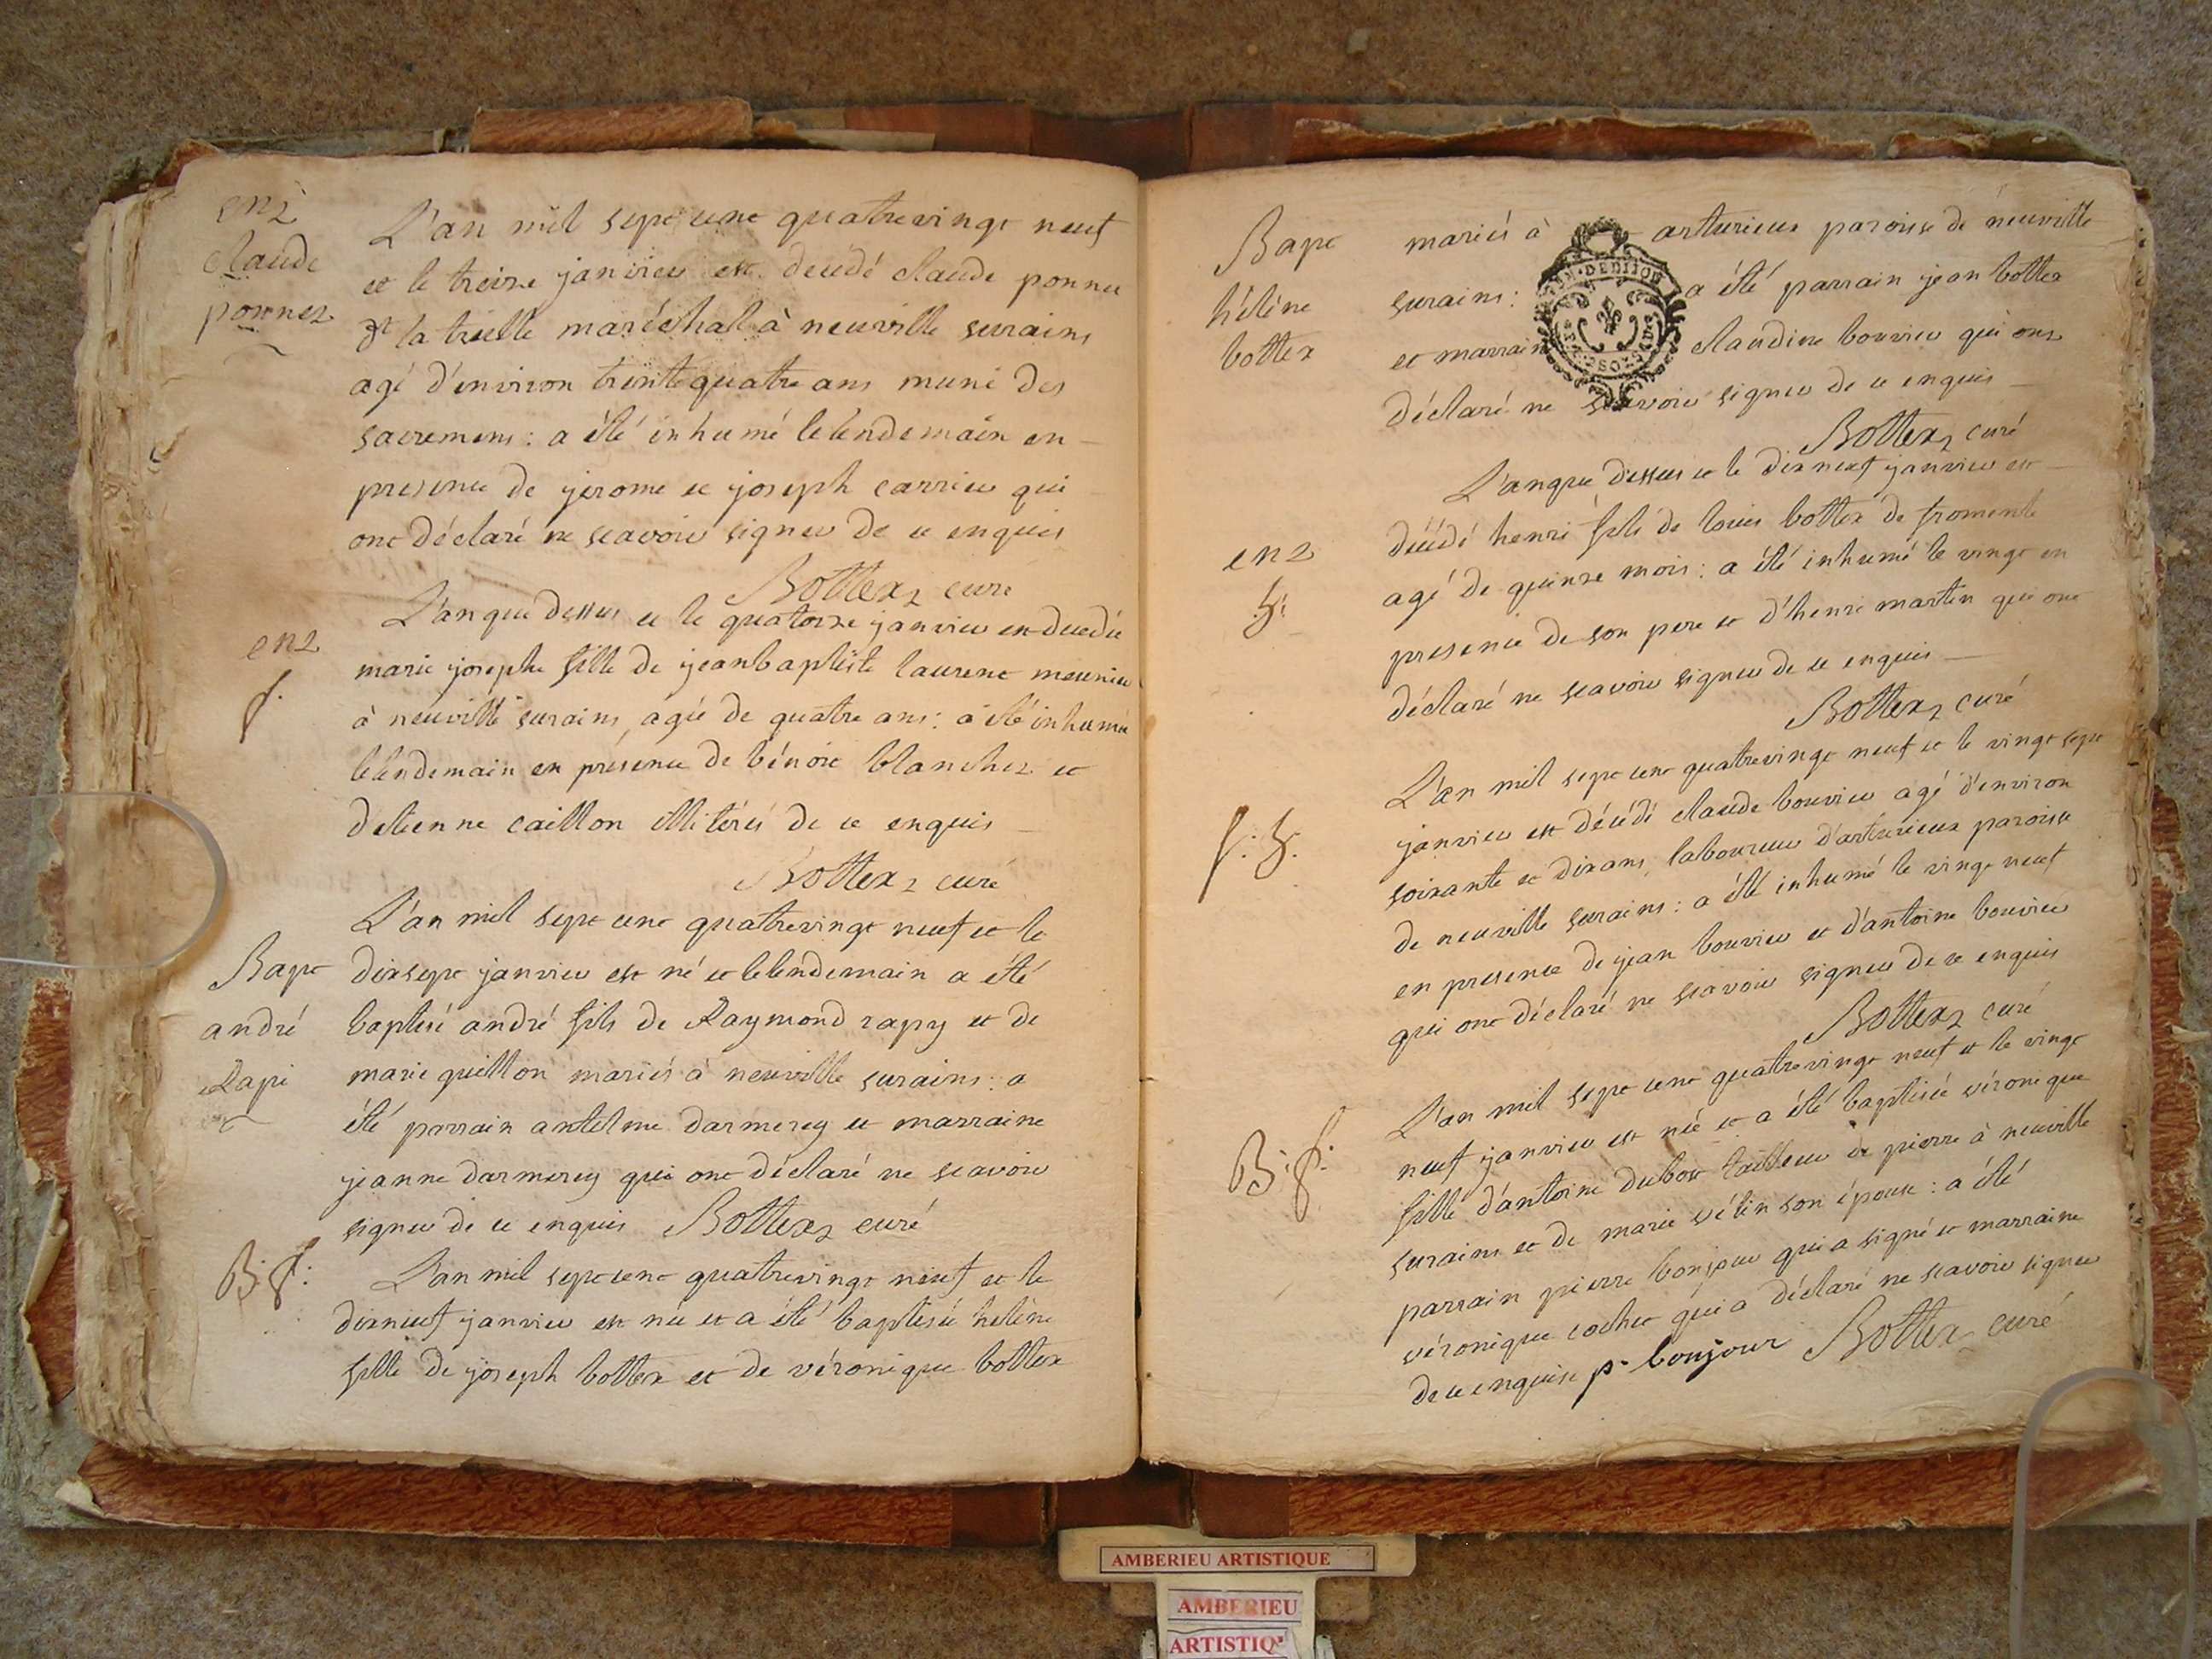 en2
claude
ponnez
L'an mil sept cent quatrevingt neuf
et le treize janvier est décédé claude ponnez
dt la trielle maréchal à neuville surains
agé d'environ trente quatre ans muni des
sacremens : a été inhumé le lendemain en
presence de jerome et joseph carrier qui
ont déclaré ne scavoir signer de ce enquis
Bottex, curé
en2
f.
L'an que dessus et le quatorze janvier est decedée
marie josephe fille de jeanbaptiste laurent meunier
à neuville surains, agée de quatre ans : a été inhumée
le lendemain en présence de bénoit blanchez et
detienne caillon illitérés de ce enquis
Bottex, curé
Bapt
andré
Rapi
L'an mil sept cent quatrevingt neuf et le
dixsept janvier est né et le lendemain a été
baptisé andré fils de Raymond rapy et de
marie quillon mariés à neuville surains : a
été parrain antelme darmerey et marraine
jeanne darmerey qui ont déclaré ne scavoir
signer de ce enquis Bottex, curé
B. f.
L'an mil sept cent quatrevingt neuf et le
dixneuf janvier est née et a été baptisée héléne
fille de joseph bottex et de véronique bottex
Bapt
héléne
bottex
mariés à arturieux paroisse de neuville
surains : a été parrain jean bottex
et marraine claudine bouvier qui ont
déclaré ne scavoir signer de ce enquis
Bottex, curé
en2
g.
L'an que dessus et le dix neuf janvier est
décédé henri fils de louis bottex de fromente
agé de quinze mois : a été inhumé le vingt en
presence de son pere et d'henri martin qui ont
déclaré ne scavoir signer de ce enquis
Bottex, curé
f. g.
L'an mil sept cent quatrevingt neuf et le vingt sept
janvier est décédé claude bouvier agé d'environ
soixante et dix ans, laboureur d'arturieux paroisse
de neuville surains : a été inhumé le vingt neuf
en presence de jean bouvier et d'antoine bouvier
qui ont déclaré ne scavoir signer de ce enquis
Bottex, curé
B. f.
L'an mil sept cent quatrevingt neuf et le vingt
neuf janvier est née et a été baptisée véronique
fille d'antoine dubost tailleur de pierre à neuville
surains et de marie vélin son épouse : a été
parrain pierre bonjour qui a signé et marraine
véronique cochet qui a déclaré ne scavoir signer
de ce enquise p. bonjour Bottex, curé
AMBERIEU ARTISTIQUE
AMBERIEU
ARTISTIQ